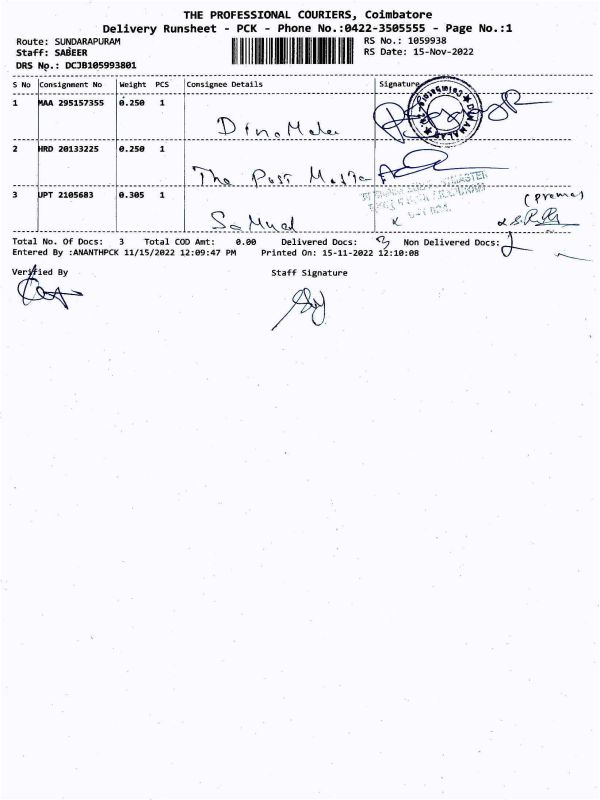 THE PROFESSIONAL COURIERS, Coimbatore
Delivery Runsheet - PCK - Phone No.:0422-3505555 - Page No.:1
Route: SUNDARAPURAM
RS No.: 1059938
Staff: SABEER
RS Date: 15-Nov-2022
DRS No.: DCJB105993801
S No Consignment No Weight PCS Consignee Details Signature
1 MAA 295157355 0.250 1
Dinamalar
2 HRD 20133225 0.250 1
The Post Master
3 UPT 2105683 0.305 1
(Prema)
Samuel
Total No. Of Docs: 3 Total COD Amt: 0.00 Delivered Docs: 3 Non Delivered Docs:
Entered By :ANANTHPCK 11/15/2022 12:09:47 PM Printed On: 15-11-2022 12:10:08
Verified By Staff Signature